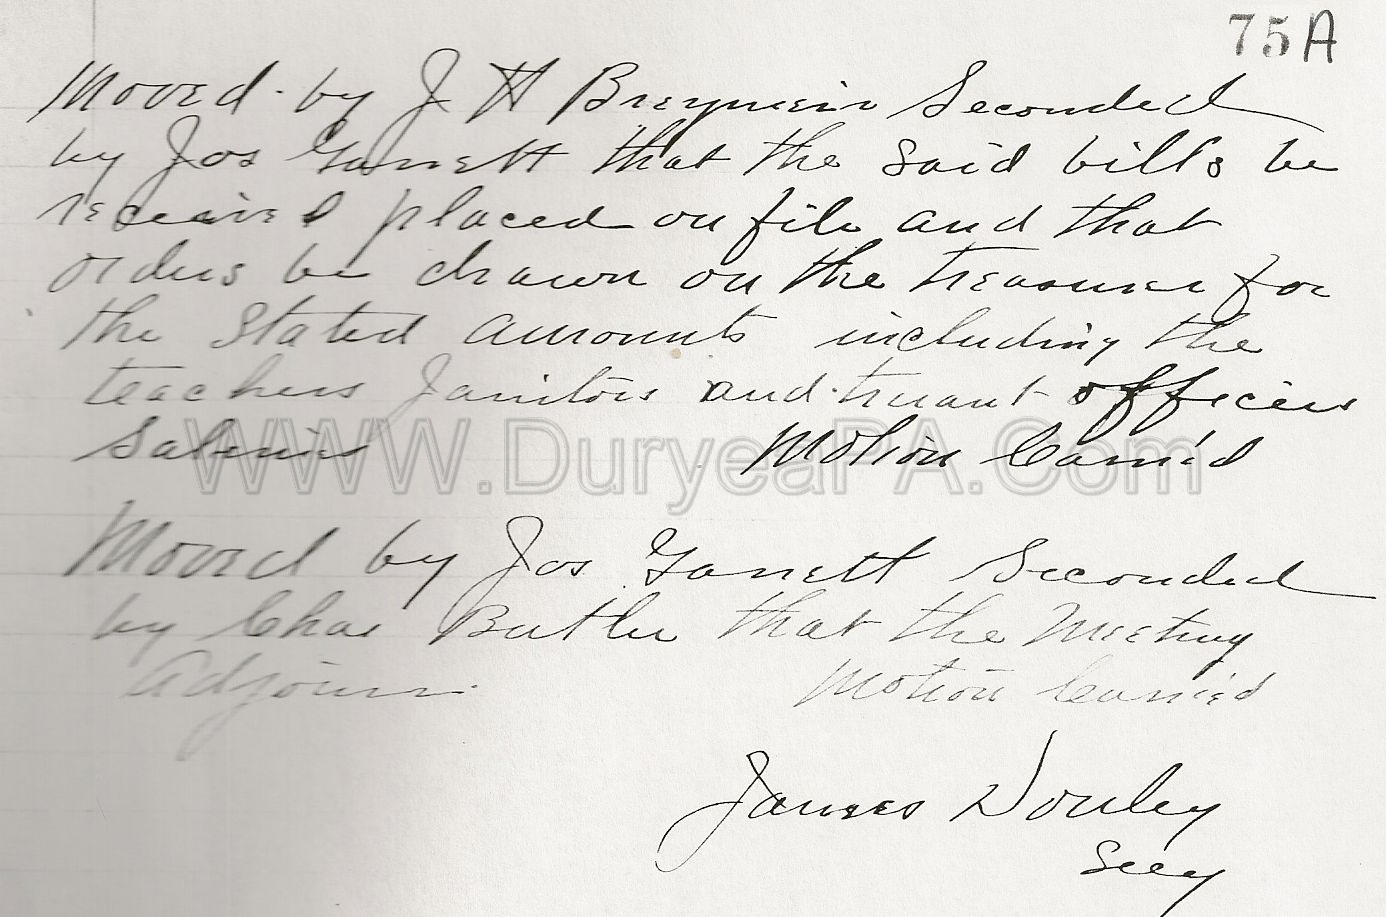 75A
Moved by J H Breymeir Seconded
by Jos Garrett that the said bills be
received placed on file and that
orders be drawn on the treasurer for
the Stated amounts including the
teachers Janitors and truant officers
Saleries Motion Carried
WWW.DuryeaPA.Com
Moved by Jos Garrett Seconded
by Chas Butler that the Meeting
Adjourn Motion Carried
James
Secy